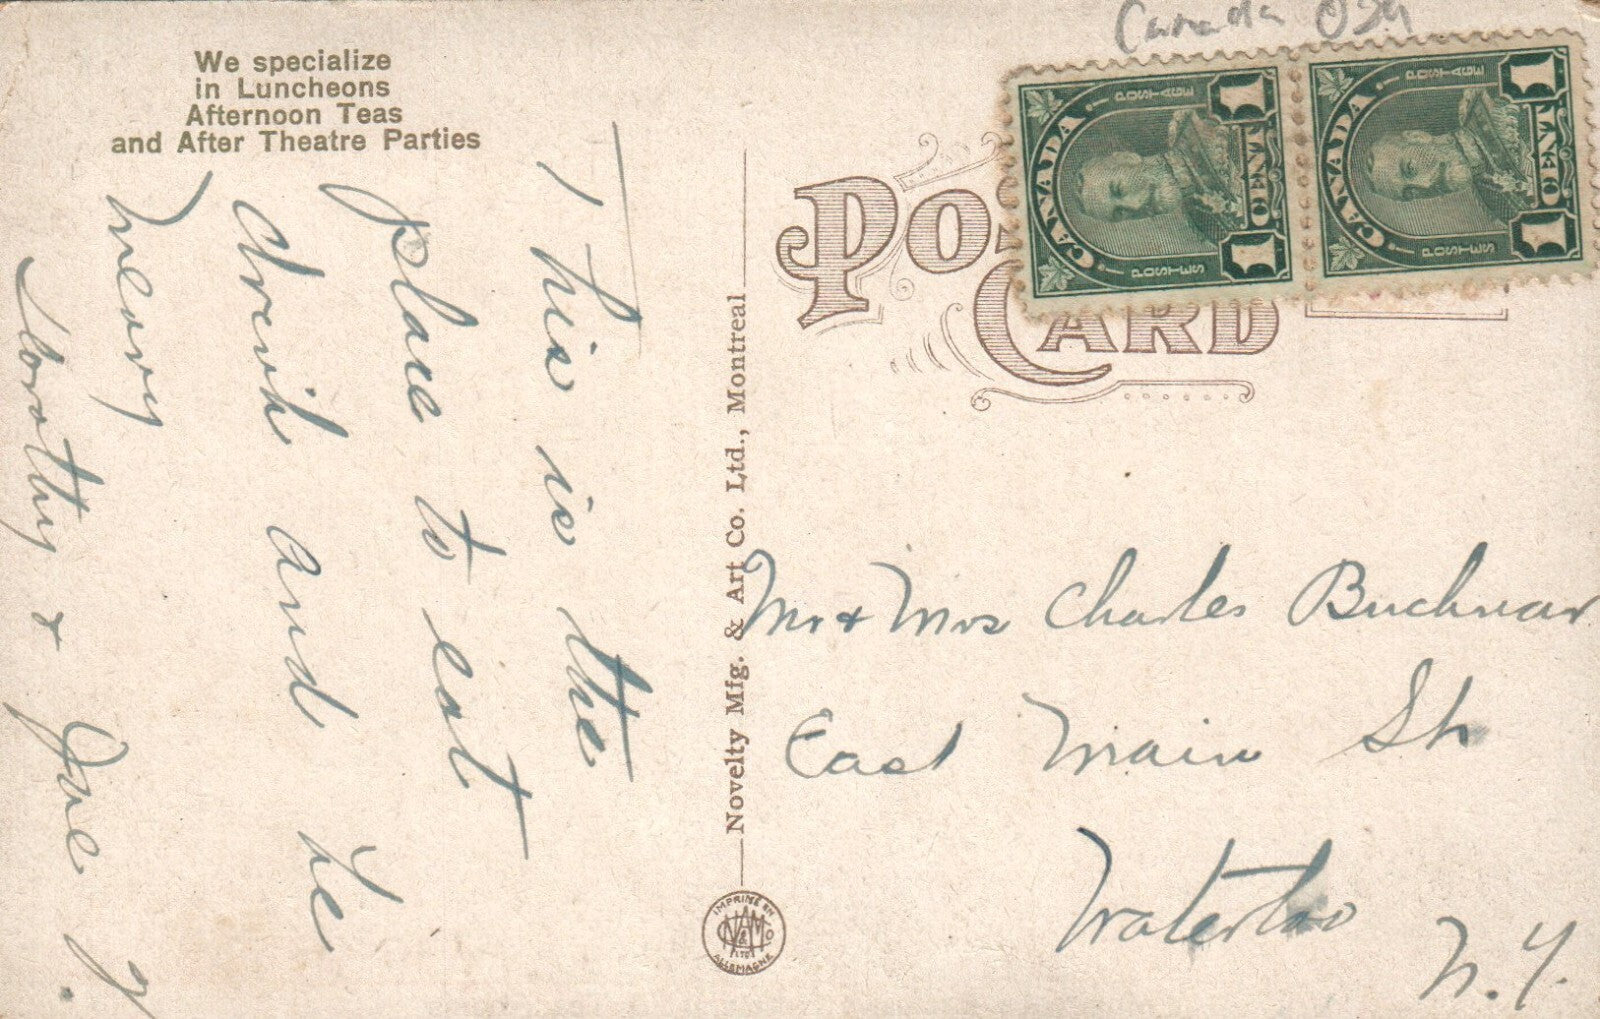 Canada
We specialize
in Luncheons
Afternoon Teas
and After Theatre Parties
This is the
place to eat
drink and be
merry
Dorothy & Joe J.
Novelty Mfg. & Art Co. Ltd., Montreal
IMPRIMÉ EN
ALLEMAGNE
POST
CARD
CANADA
POSTAGE
POSTES
1 CENT 1
CANADA
POSTAGE
POSTES
1 CENT 1
Mr & Mrs Charles Buchnear
East Main St
Waterloo
N.Y.